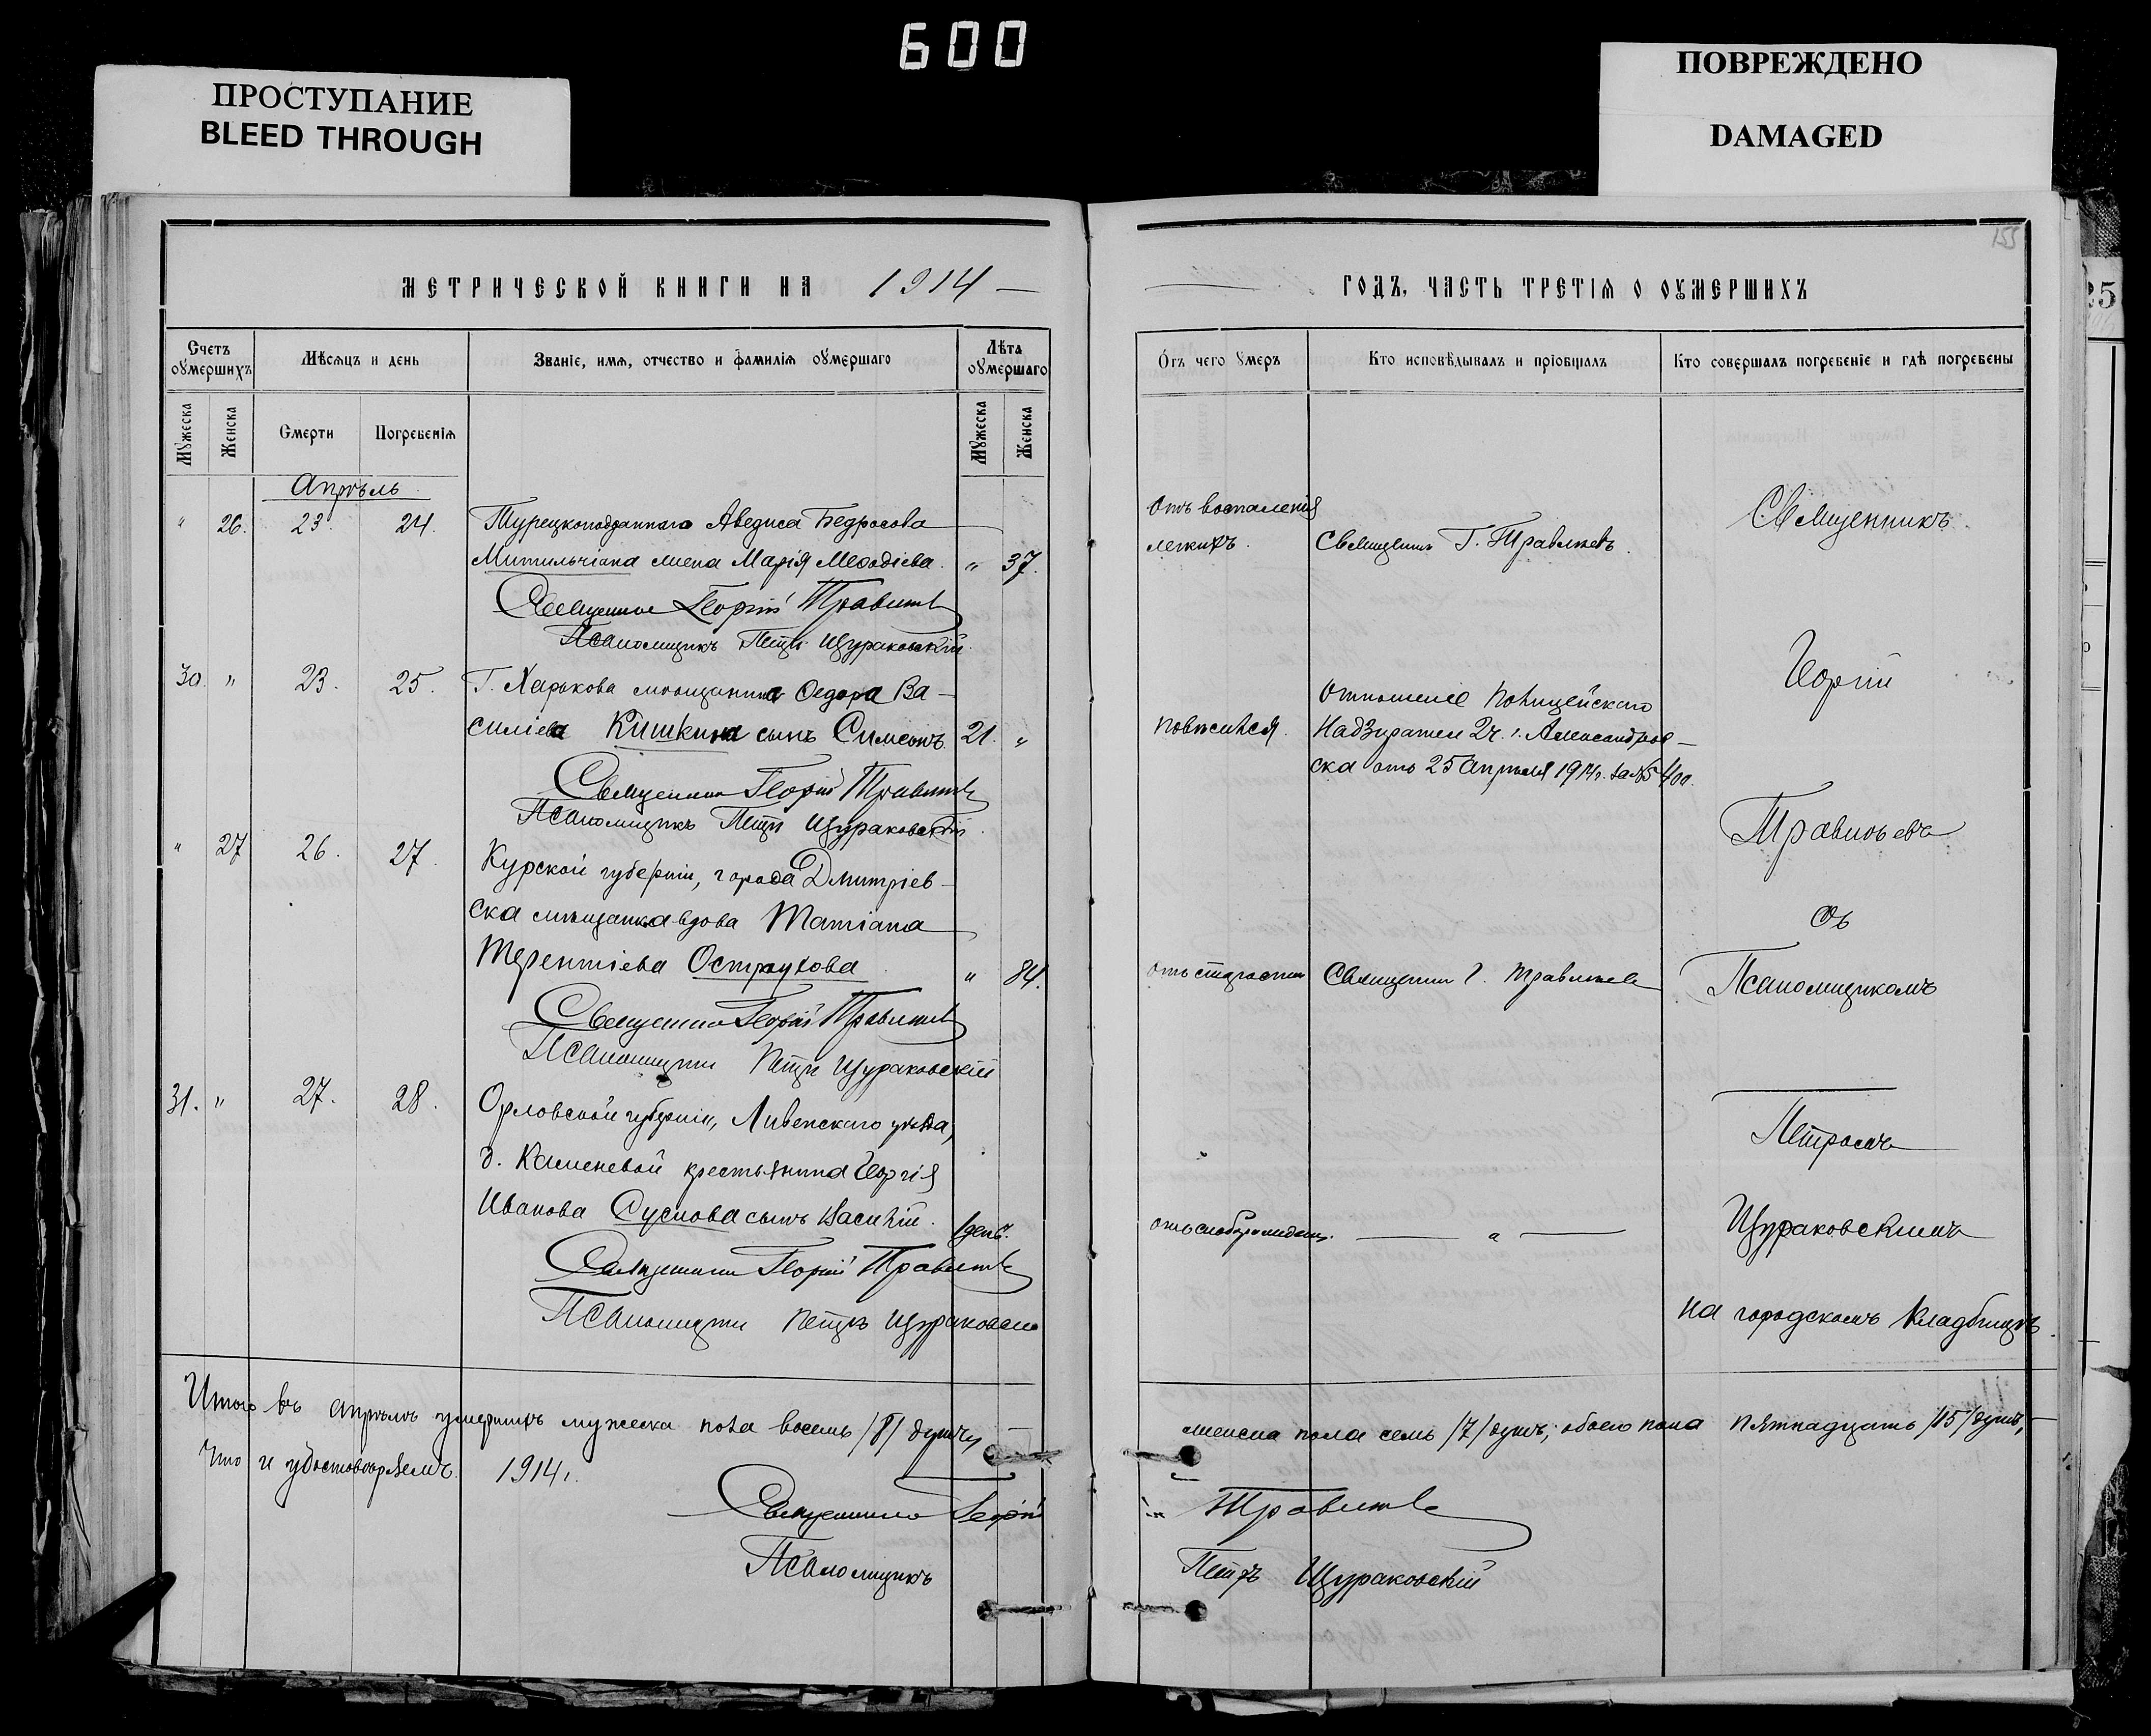 600
ПРОСТУПАНИЕ
BLEED THROUGH
ПОВРЕЖДЕНО
DAMAGED
155
25
МЕТРИЧЕСКОЙ КНИГИ НА 1914
Счетъ оумершихъ
Мѣсяцъ и день
Званіе, имя, отчество и фамилія оумершаго
Лѣта оумершаго
Мужеска
Женска
Смерти
Погребенія
Мужеска
Женска
Апрѣль
" 26. 23. 24. Турецкоподданнаго Аведиса Бедросова
Митильчіана жена Марія Меѳодіева. " 37.
Священникъ Георгій Травинѣвъ
Псаломщикъ Петръ Щураковскій
30. " 23. 25. Г. Харькова мѣщанина Ѳедора Ва-
силіева Кишкина сынъ Симеонъ 21. "
Священникъ Георгій Травинѣвъ
Псаломщикъ Петръ Щураковскій
" 27 26. 27. Курской губерніи, города Дмитріев-
ска мѣщанка вдова Татіана
Терентіева Остроухова " 84.
Священникъ Георгій Травинѣвъ
Псаломщикъ Петръ Щураковскій
31. " 27. 28. Орловской губерніи, Ливенскаго уѣзда,
д. Каменевой крестьянина Георгія
Иванова Суснова сынъ Василій. 1 день.
Священникъ Георгій Травинѣвъ
Псаломщикъ Петръ Щураковскій
Итого въ апрѣлѣ умершихъ мужеска пола восемь /8/ душъ,
Что и удостовѣряемъ. 1914 г.
Священникъ Георгій
Псаломщикъ
ГОДЪ, ЧАСТЬ ТРЕТІЯ О ОУМЕРШИХЪ
Отъ чего умеръ
Кто исповѣдывалъ и пріобщалъ
Кто совершалъ погребеніе и гдѣ погребены
Отъ воспаленія
легкихъ. Священникъ Г. Травинѣвъ.
Священникъ
Георгій
Повѣсился. Отношеніе Полицейскаго
Надзирателя 2 ч. г. Александров-
ска отъ 25 Апрѣля 1914 г. за №5400.
Травинѣвъ
съ
Отъ старости Священникъ Г. Травинѣвъ
Псаломщикомъ
Петромъ
Отъ слаборожденія. "
Щураковскимъ
на городскомъ кладбищѣ.
женска пола семь /7/ душъ; обоего пола пятнадцать /15/ душъ,
Травинѣвъ
Петръ Щураковскій